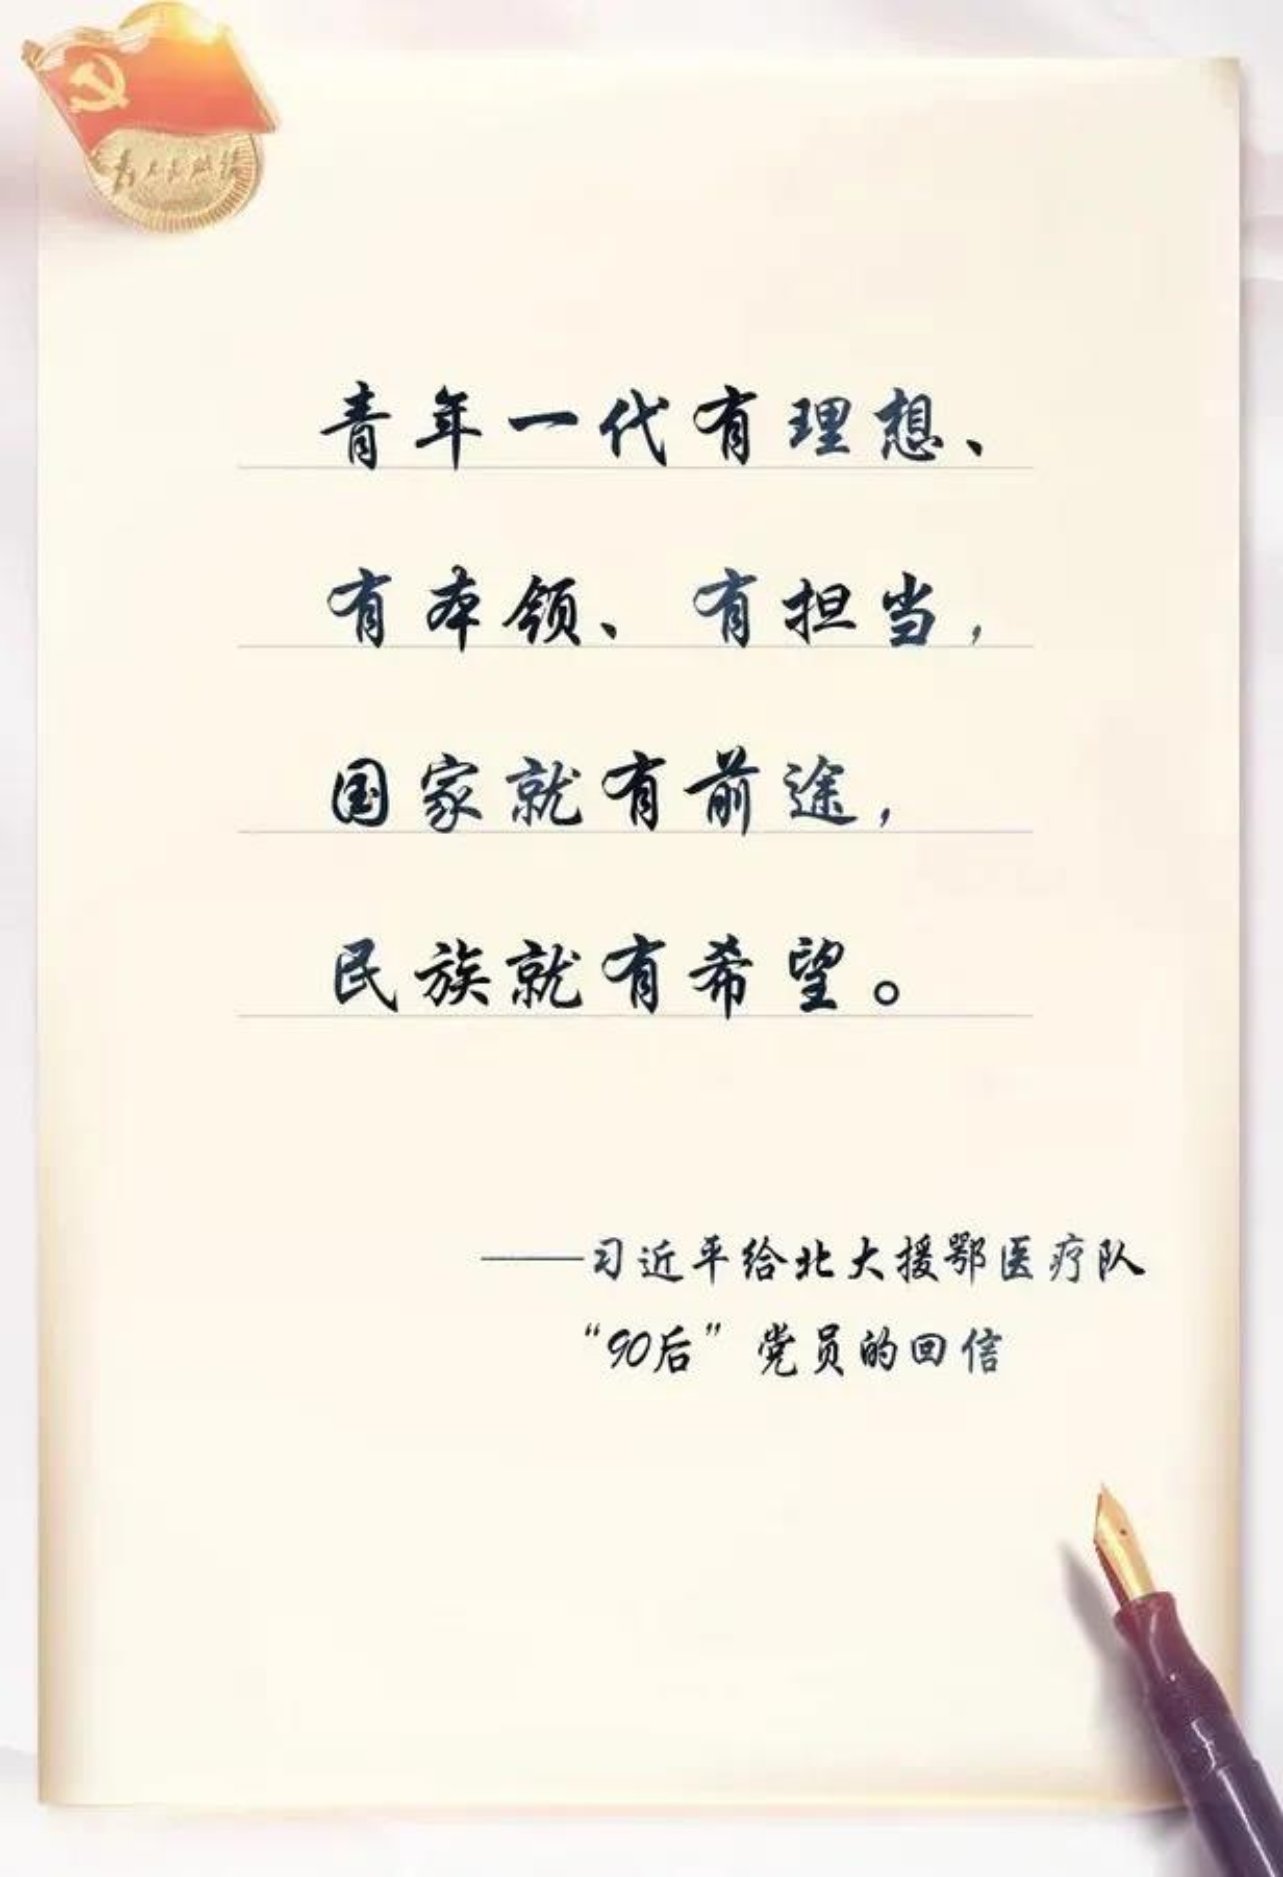 为人民服务
青年一代有理想、
有本领、有担当，
国家就有前途，
民族就有希望。
——习近平给北大援鄂医疗队
“90后”党员的回信